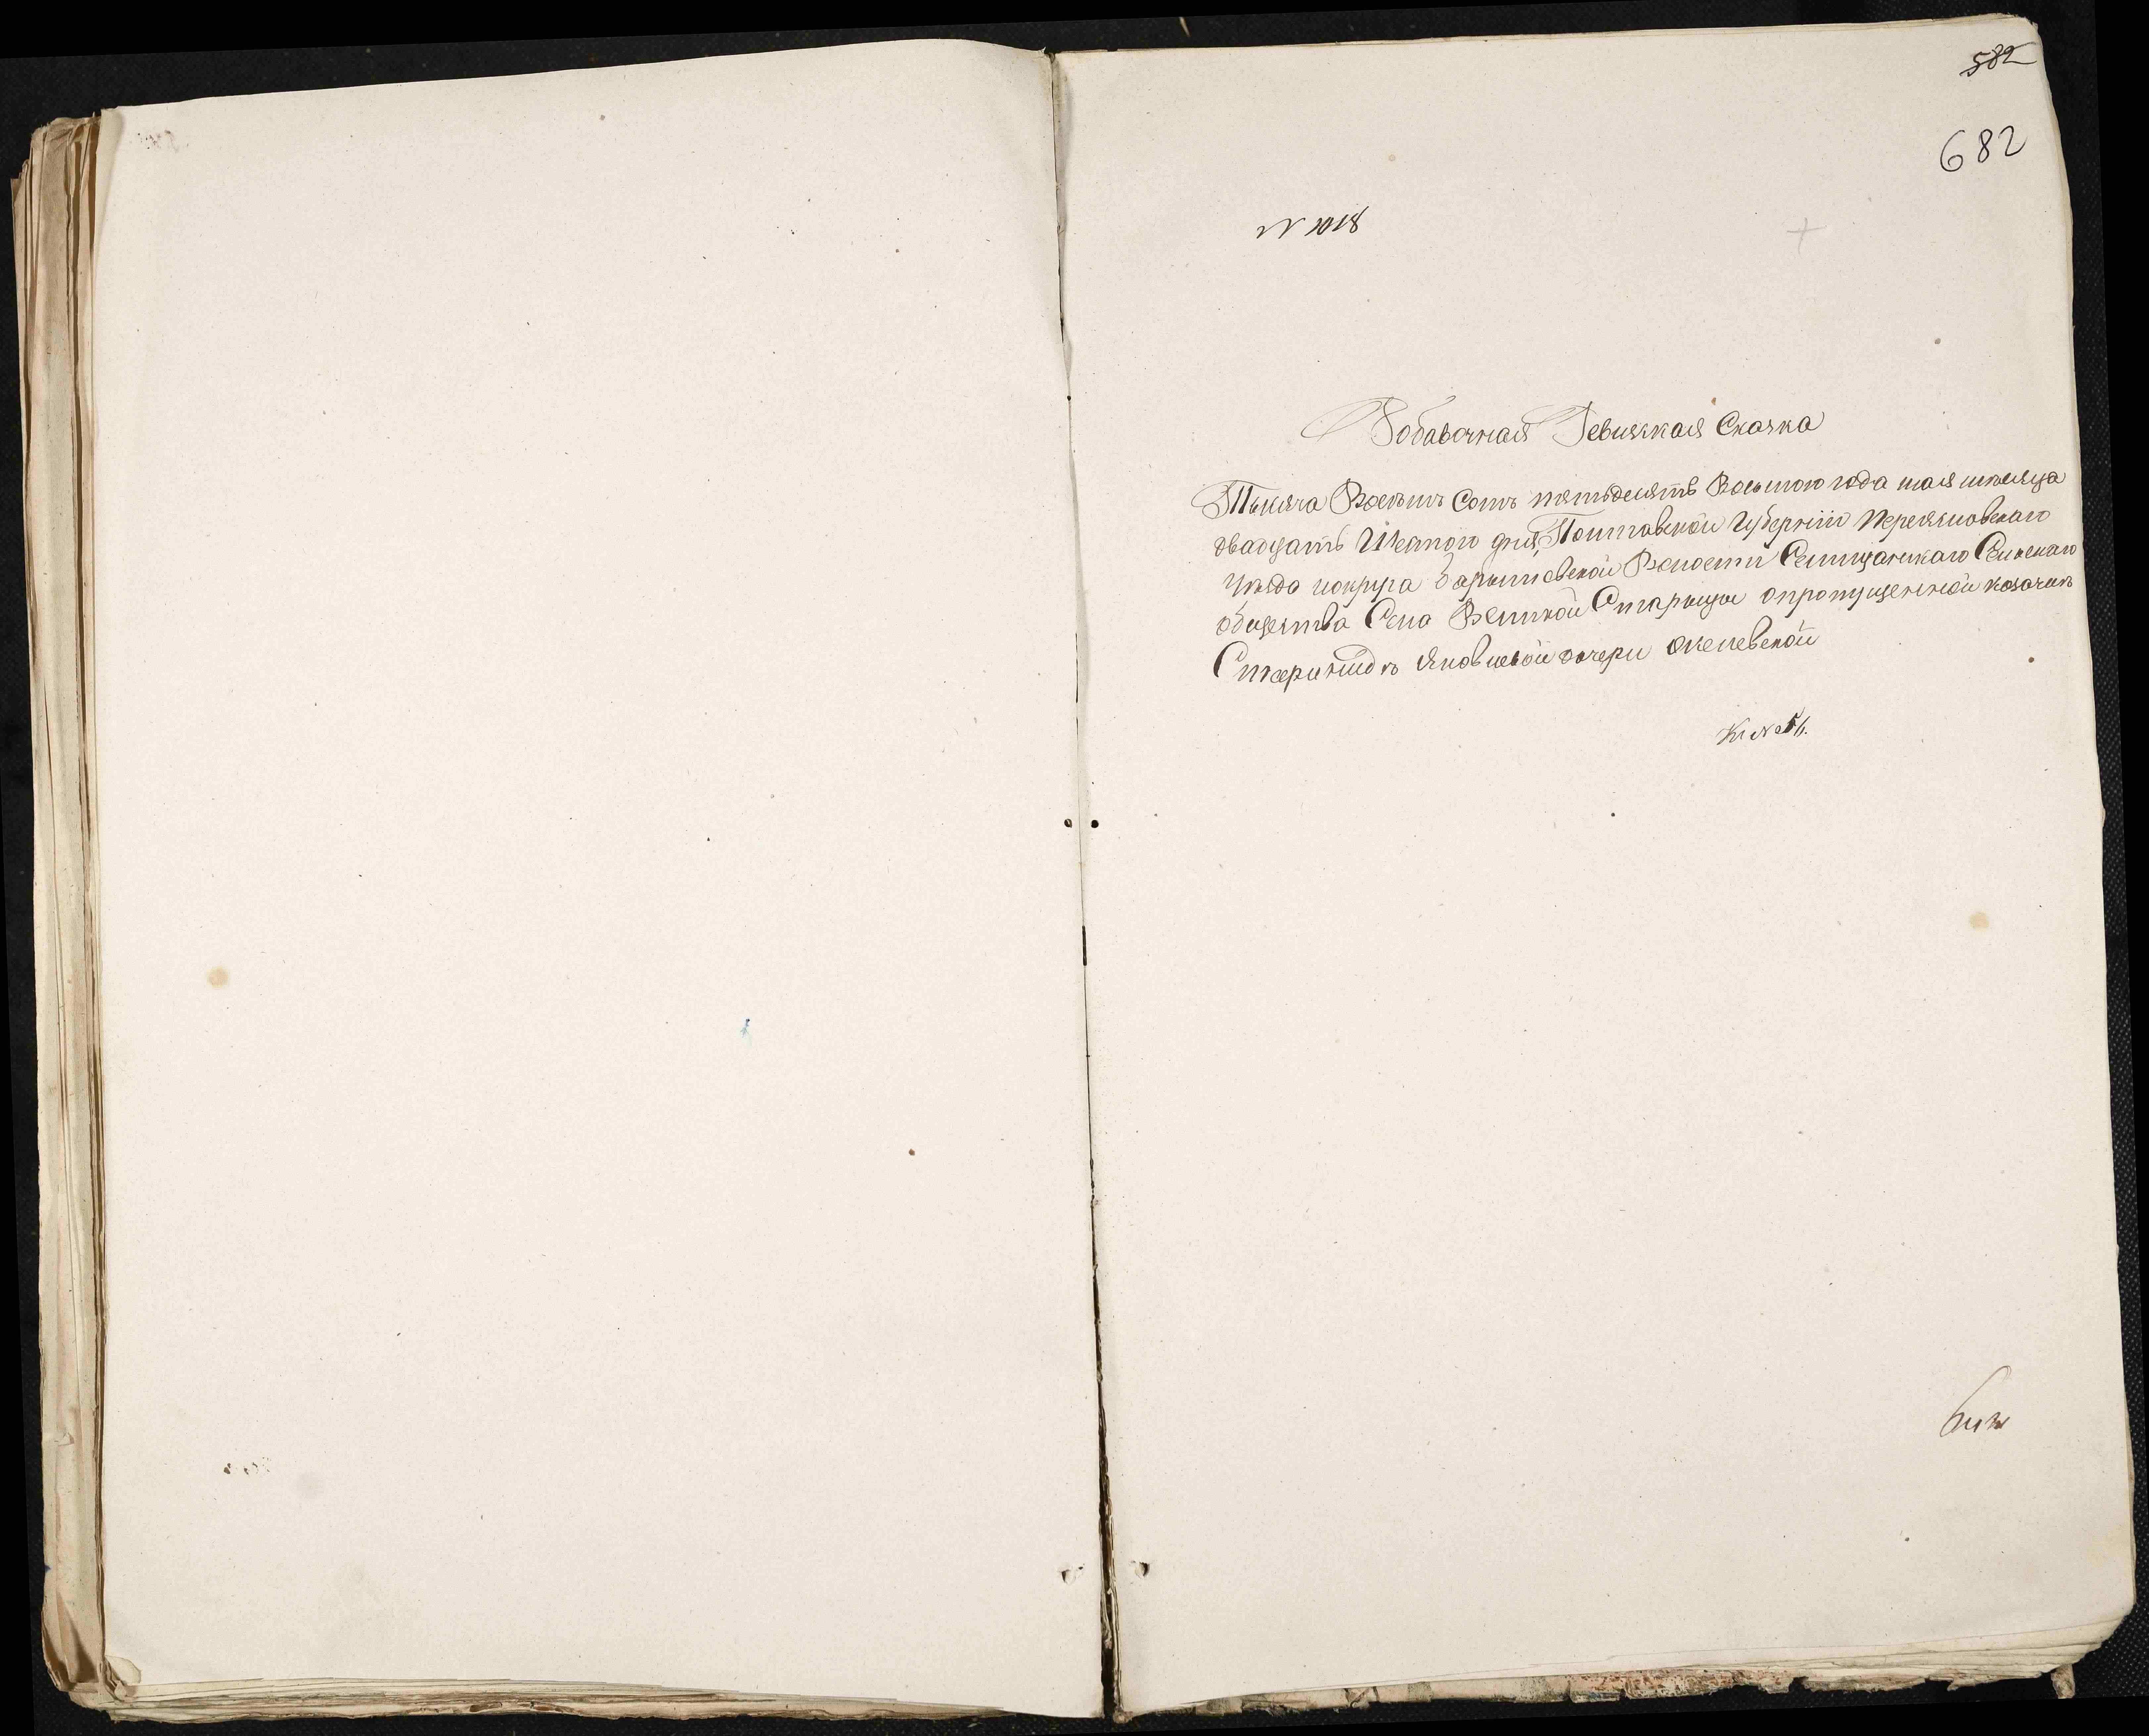 582
682
N 1018
Добавочная Ревизская Сказка
Тысяча Восемь Сотъ пятьдесятъ Восьмого года мая месяца
двадцать Шестого дня, Полтавской Губерніи Переяславскаго
уезда и округа Барышевской Волости Селищанскаго Сельскаго
общества Села Великой Старицы о пропущенной казачке
Яковлевой дочери
Къ № 56.